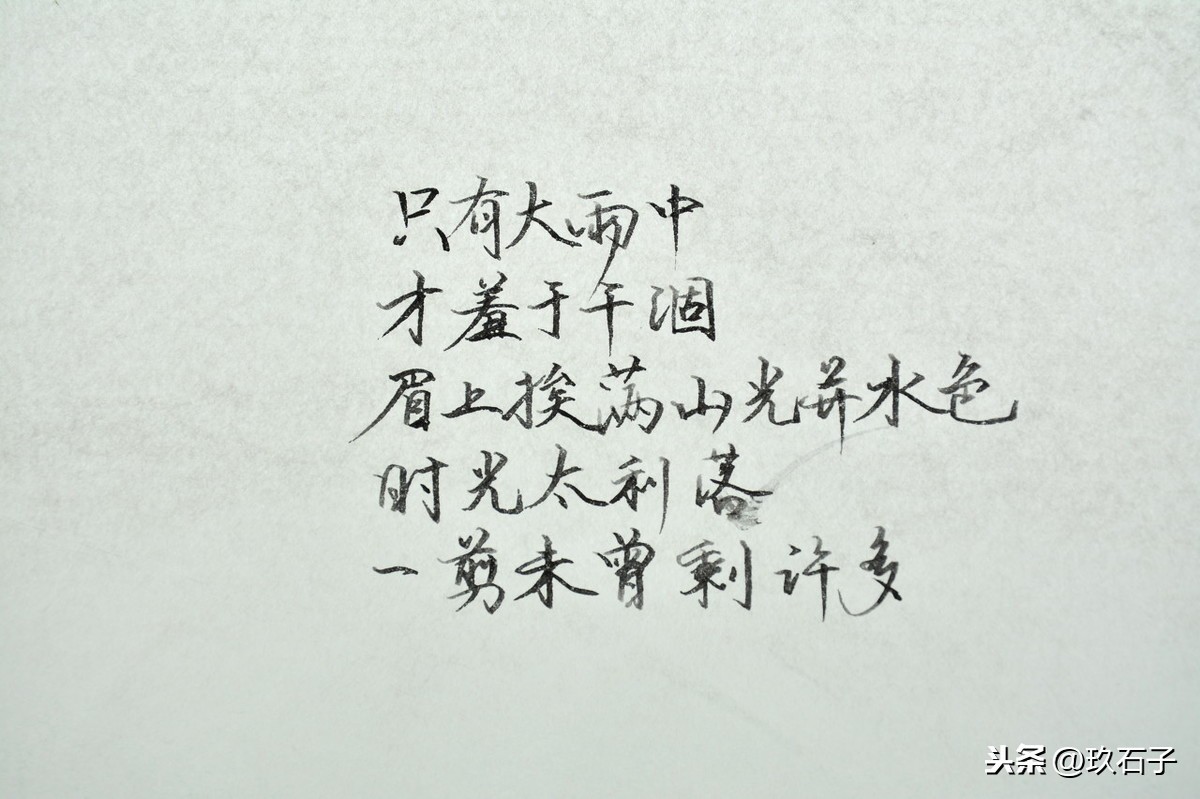 只有大雨中
才羞于干涸
眉上挨满山光并水色
时光太利落
一剪未曾剩许多
头条@玖石子